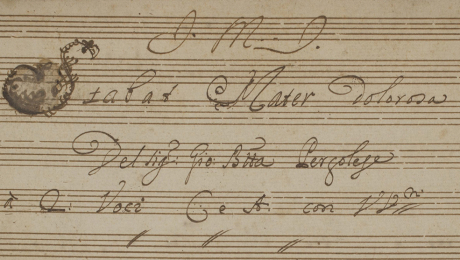 J. M. J.
Stabat Mater Dolorosa
Del Sig.r Gio: Btta Pergolese
a 2: Voci C: e A: con VV.ni